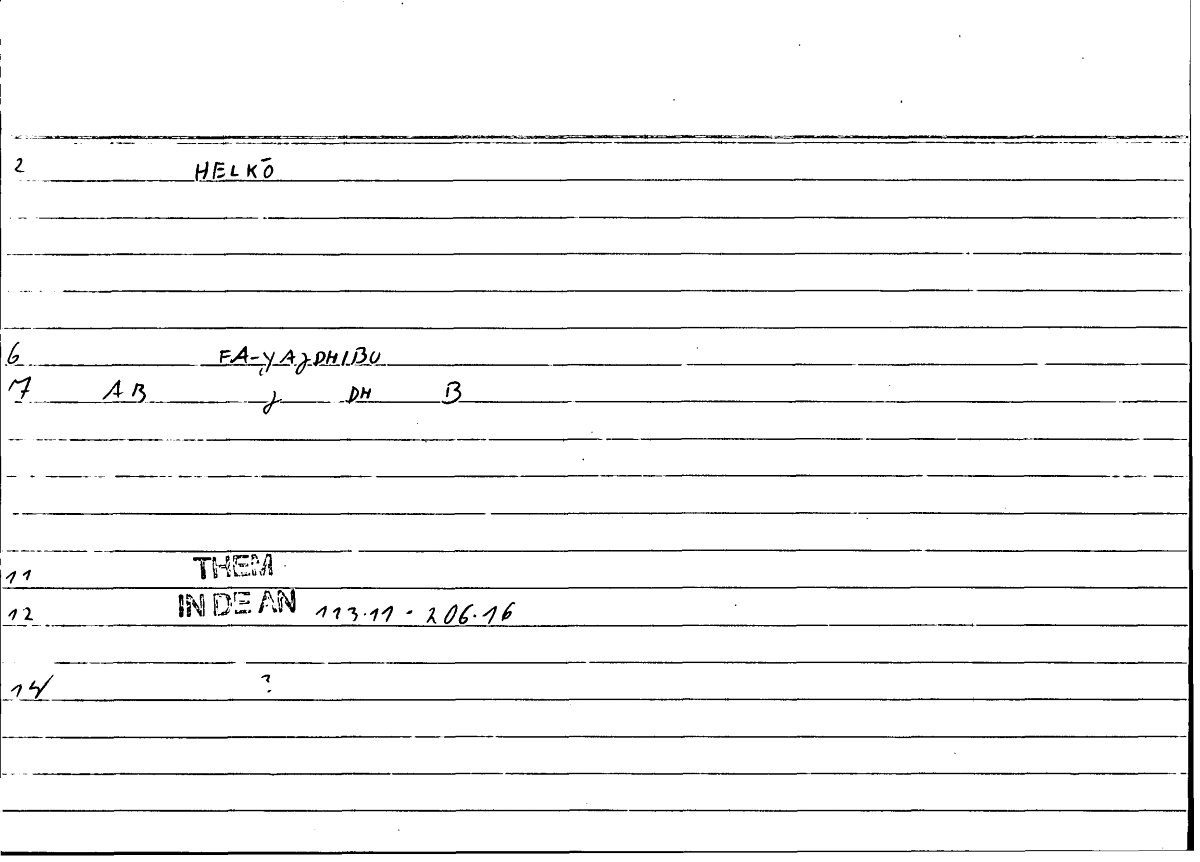 2 HELKŌ
6 FA-YAJDHIBU
7 AB J DH B
11 THEM
12 IN DE AN 113.11 - 206.16
14 ?